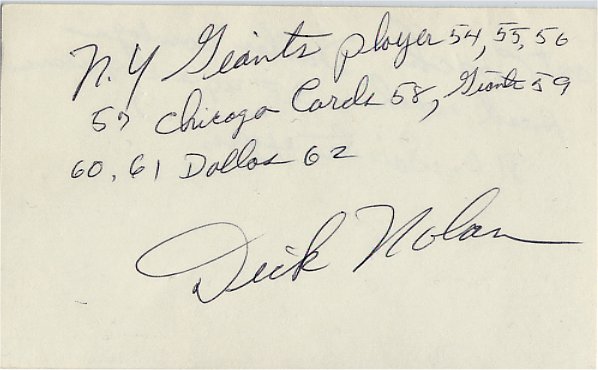 N.Y Giants player 54, 55, 56
57 Chicago Cards 58, Giants 59
60, 61 Dallas 62
Dick Nolan